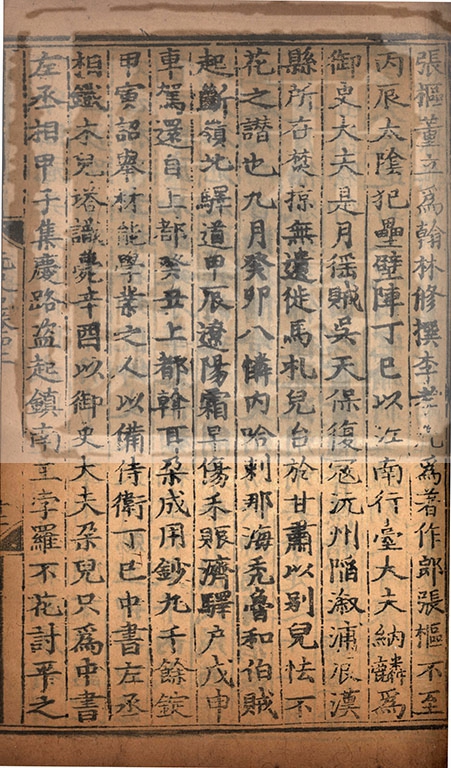 張樞董立為翰林修撰李孝光為著作郎張樞不至
丙辰太陰犯壘壁陣丁巳以江南行臺大夫納麟為
御史大夫是月徭賊吳天保復寇沅州陷漵浦辰溪
縣所在焚掠無遺徙馬札兒台於甘肅以別兒怯不
花之譖也九月癸卯八憐內哈剌那海禿魯和伯賊
起斷嶺北驛道甲辰遼陽霜早傷禾賑濟驛戶戊申
車駕還自上都癸丑上都斡耳朵成用鈔九千餘錠
甲寅詔舉材能學業之人以備侍衛丁巳中書左丞
相鐵木兒塔識薨辛酉以御史大夫朵兒只為中書
左丞相甲子集慶路盜起鎮南王孛羅不花討平之